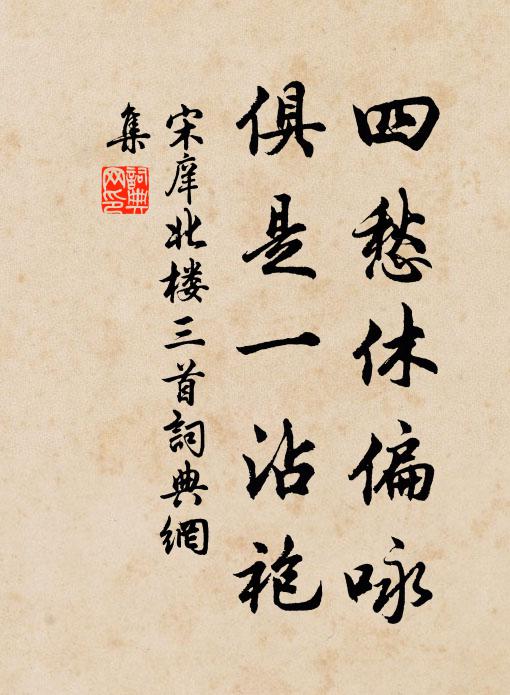 四愁休偏咏
俱是一沾袍
宋庠北楼三首詞典網
集
詞典
网印